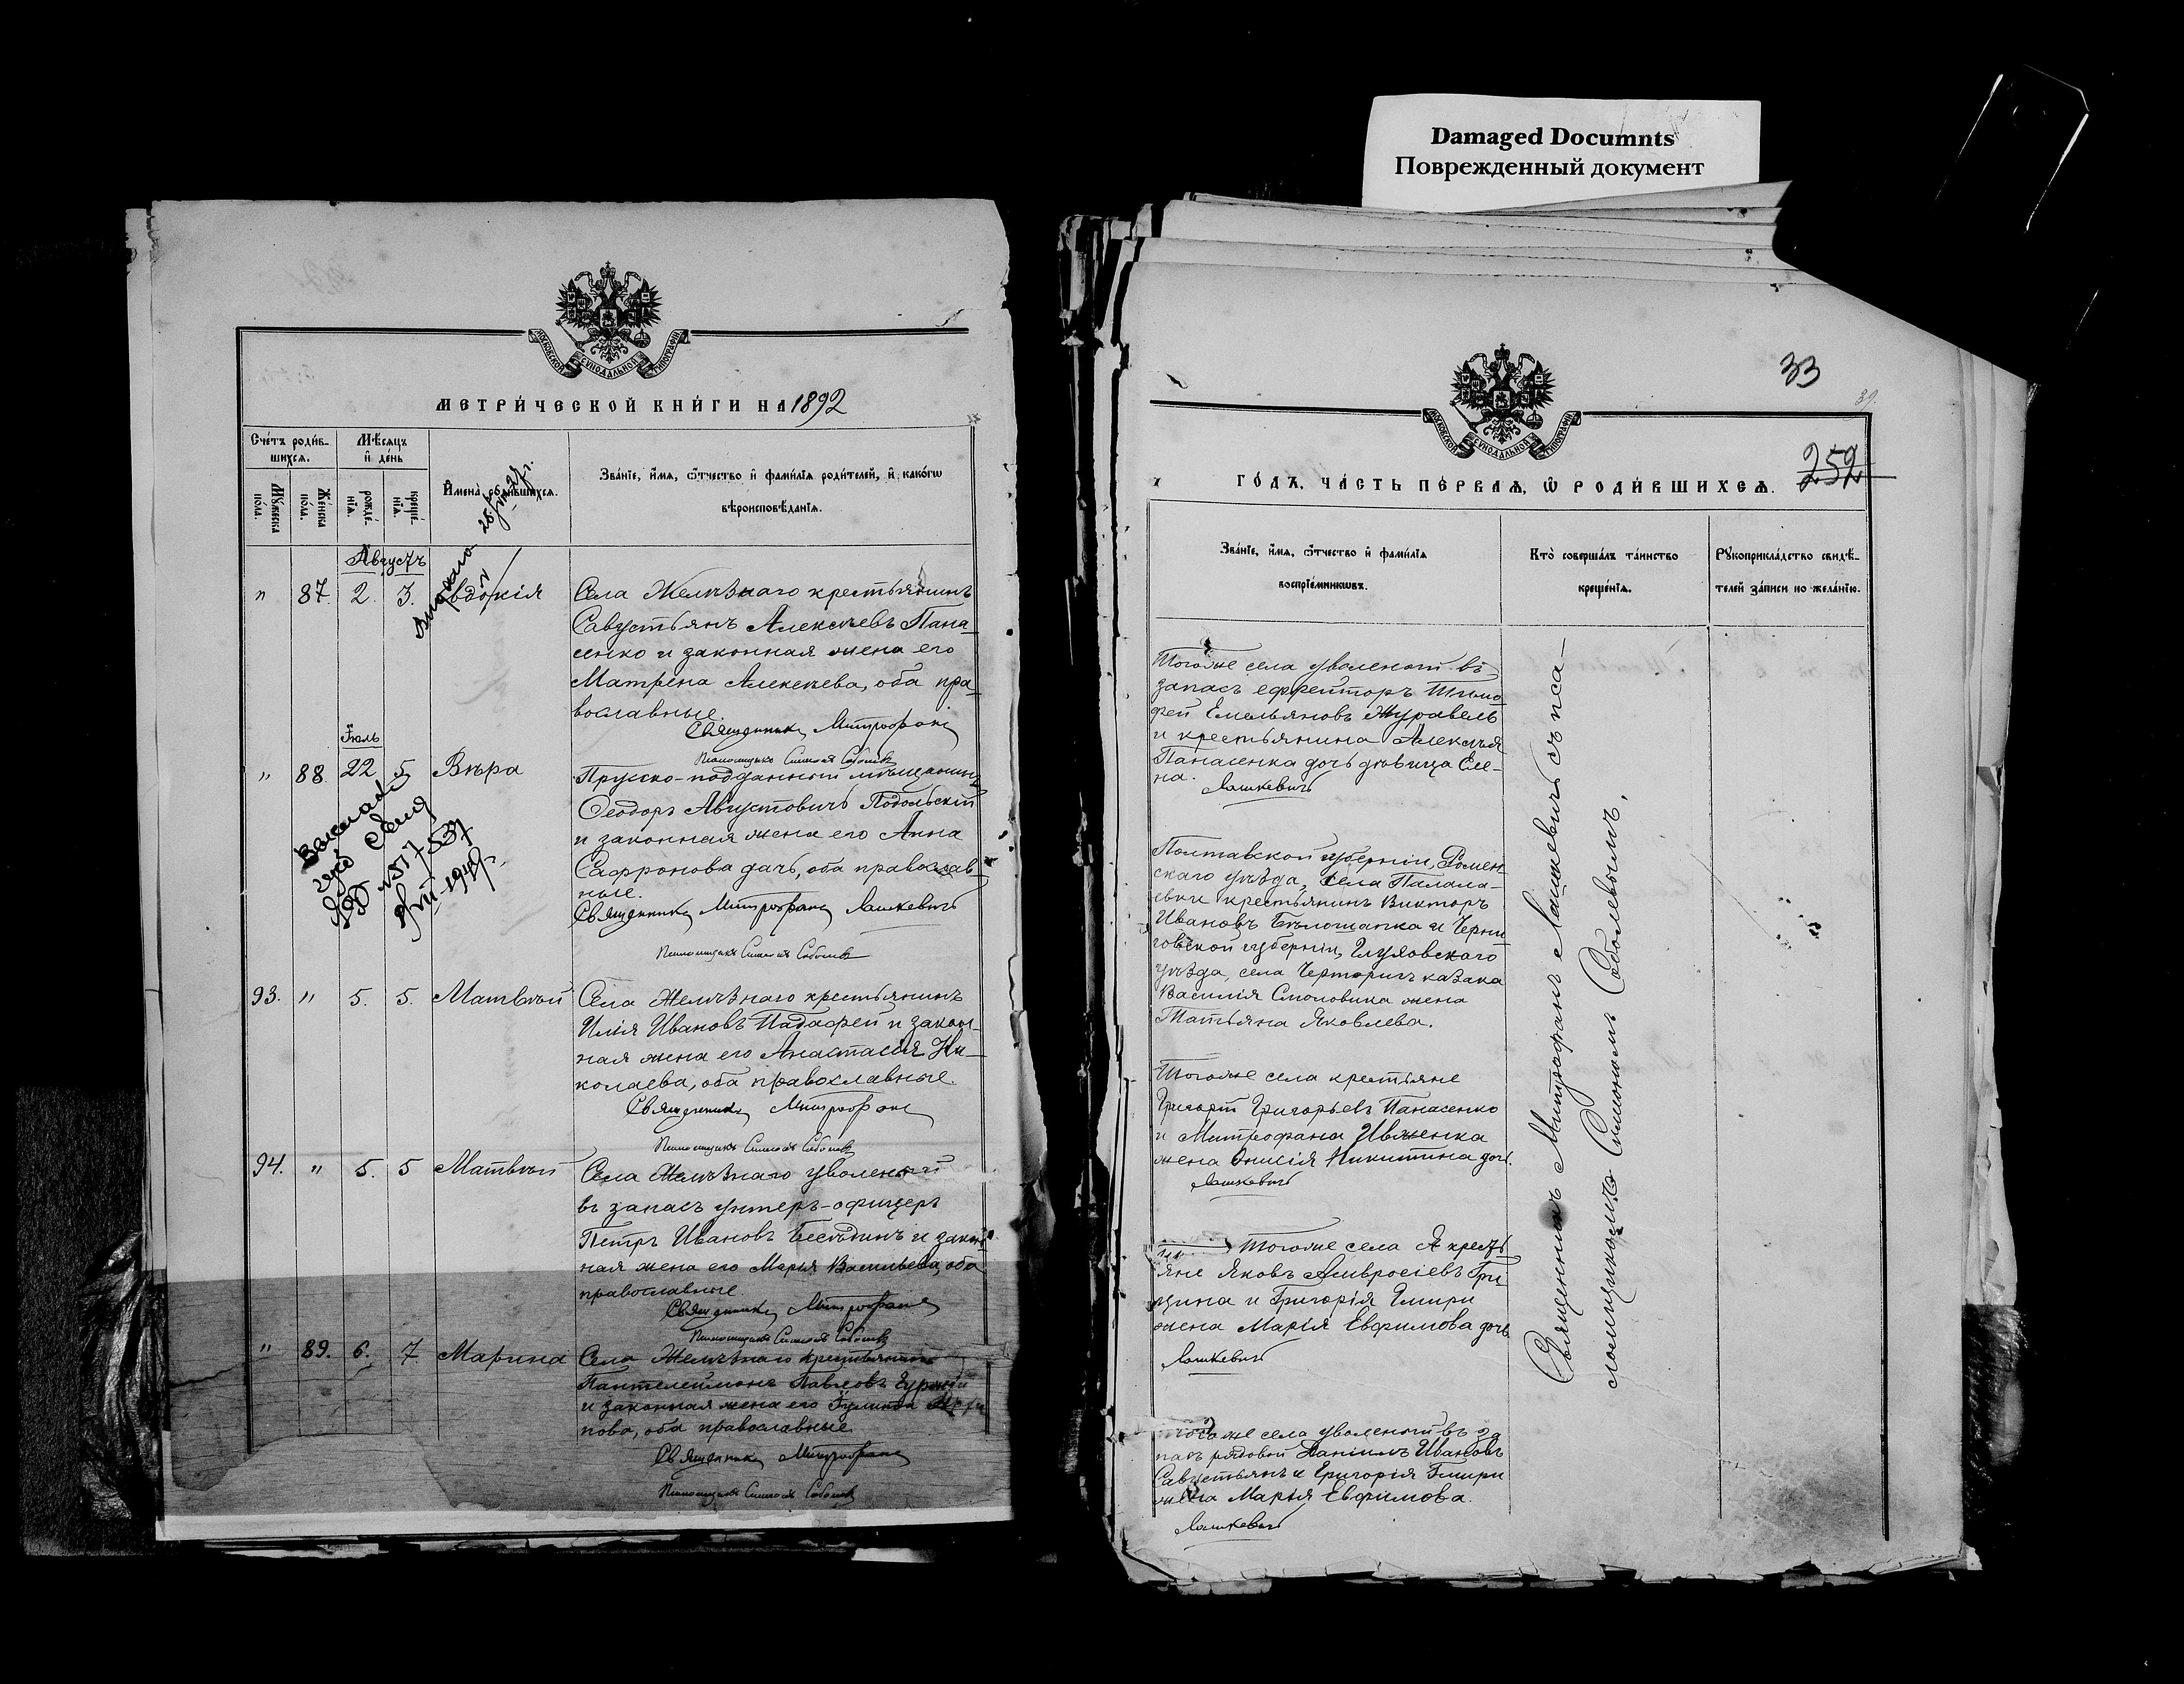 Damaged Documnts
Поврежденный документ
МОСКОВСКОЙ СѴНОДАЛЬНОЙ ТИПОГРАФІИ
МЕТРИ́ЧЕСКОЙ КНИ́ГИ НА 1892
Сче́тъ роди́в-
шихсѧ.
Мѣ́сѧцъ
и҆ де́нь
Мꙋ́жеска
по́ла.
Же́нска
по́ла.
рожде́-
нїѧ.
креще́-
нїѧ.
И҆мена̀ роди́вшихсѧ.
Зва́нїе, и҆́мѧ, ѻ҆́тчество и҆ фами́лїѧ роди́телей, и҆ како́гѡ
вѣроисповѣ́данїѧ.
Августъ
" 87. 2. 3. Евдокія
Села Желѣзнаго крестьянинъ
Савустьянъ Алексѣевъ Пана-
сенко и законная жена его
Матрена Алексѣева, оба пра-
вославные.
Священникъ Митрофанъ
Псаломщикъ Симонъ Соболевъ
Іюль
" 88. 22 5 Вѣра
Прусско-подданный мѣщанинъ
Ѳеодоръ Августовичъ Подольскій
и законная жена его Анна
Сафронова дочь, оба православ-
ные.
Священникъ Митрофанъ Лашкевичъ
Псаломщикъ Симонъ Соболевъ
93. " 5. 5. Матвѣй
Села Желѣзнаго крестьянинъ
Илія Ивановъ Падафей и закон-
ная жена его Анастасія Ни-
колаева, оба православные.
Священникъ Митрофанъ
Псаломщикъ Симонъ Соболевъ
94. " 5. 5 Матвѣй
Села Желѣзнаго уволеный
въ запасъ унтеръ-офицеръ
Петръ Ивановъ Бесѣдинъ и закон-
ная жена его Марья Васильева, оба
православные.
Священникъ Митрофанъ
Псаломщикъ Симонъ Соболевъ
" 89. 6. 7 Марина
Села Желѣзнаго крестьянинъ
Пантелеимонъ Павловъ
и законная жена его
пова, оба православные.
Священникъ Митрофанъ
Псаломщикъ Симонъ Соболевъ
33
39.
МОСКОВСКОЙ СѴНОДАЛЬНОЙ ТИПОГРАФІИ
252
ГО́ДЪ, ЧА́СТЬ ПЕ́РВАѦ, Ѡ҆ РОДИ́ВШИХСѦ.
Зва́нїе, и҆́мѧ, ѻ҆́тчество и҆ фами́лїѧ
воспрїе́мникѡвъ.
Кто̀ соверша́лъ та́инство
креще́нїѧ.
Рꙋкоприкла́дство свидѣ́-
телей за́писи по жела́нїю.
Тогоже села уволеный въ
запасъ ефрейторъ Тимо-
фей Емельяновъ Журавель
и крестьянина Алексѣя
Панасенка дочь дѣвица Еле-
на.
Лашкевичъ
Полтавской губерніи, Ромен-
скаго уѣзда, села
крестьянинъ Викторъ
Ивановъ Бѣлошапка и Черни-
говской губерніи, Глуховскаго
уѣзда, села Черторигъ казака
Василія Смоловика жена
Татьяна Яковлева.
Тогоже села крестьяне
Григорій Григорьевъ Панасенко
и Митрофана Ивженка
жена Анисія Никитина дочь.
Лашкевичъ
Тогоже села крестья-
яне Яковъ Амвросіевъ Гри-
цина и Григорія Гмири
жена Марія Евфимова дочь
Лашкевичъ
Тогоже села уволеный въ за-
пасъ рядовой Даніилъ Ивановъ
Савустьянъ и Григорія Гмири
жена Марья Евфимова.
Лашкевичъ
Священникъ Митрофанъ Лашкевичъ съ пса-
ломщикомъ Симономъ Соболевымъ.